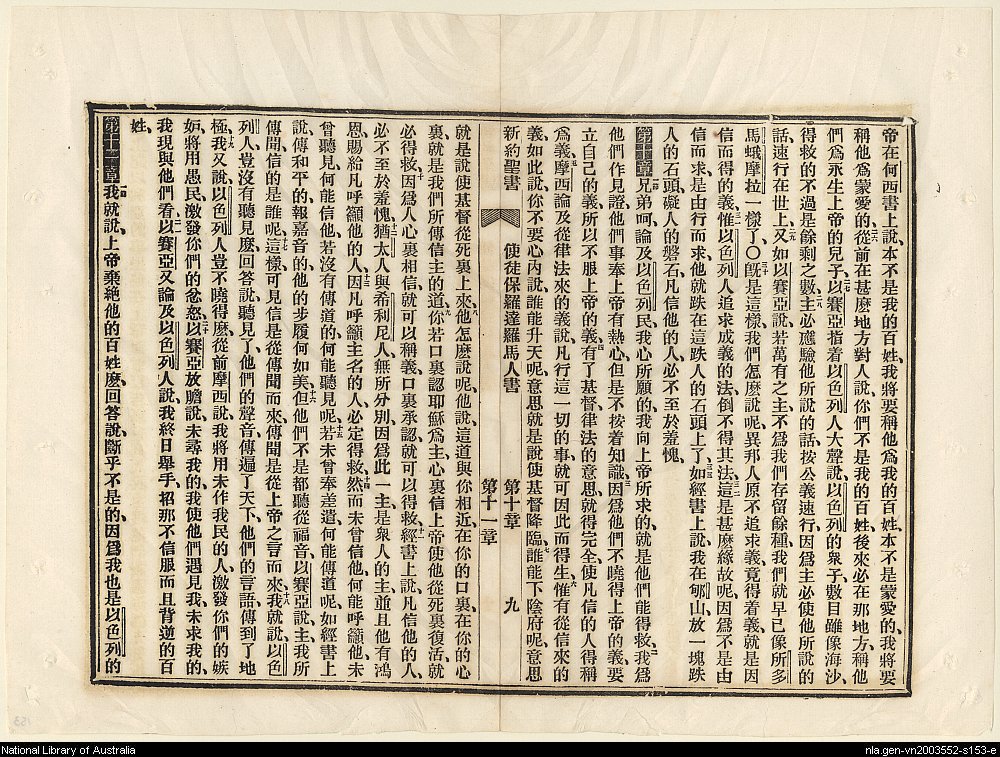 帝在何西書上說、本不是我的百姓、我將要稱他爲我的百姓、本不是蒙愛的、我將要
稱他爲蒙愛的、二六從前在甚麽地方對人說、你們不是我的百姓、後來必在那地方、稱他
們爲永生上帝的兒子、二七以賽亞指着以色列人大聲說、以色列的衆子、數目雖像海沙、
得救的不過是餘剩之數、二八主必應驗他所說的話、按公義速行、因爲主必使他所說的
話、速行在世上、二九又如以賽亞說、若萬有之主、不爲我們存留餘種、我們就早已像所多
馬蛾摩拉一樣了、〇三十旣是這樣、我們怎麽說呢、異邦人原不追求義、竟得着義、就是因
信而得的義、三一惟以色列人追求成義的法、倒不得其法、三二這是甚麽緣故呢、因爲不是由
信而求、是由行而求、他就跌在這跌人的石頭上了、三三如經書上說、我在郇山、放一塊跌
人的石頭、礙人的磐石、凡信他的人、必不至於羞愧、
第十章一兄弟呵、論及以色列民、我心所願的、我向上帝所求的、就是他們能得救、二我爲
他們作見證、他們事奉上帝有熱心、但是不按着知識、三因爲他們不曉得上帝的義、要
立自己的義、所以不服上帝的義、四有了基督、律法的意思就得完全、使凡信的人得稱
爲義、五摩西論及從律法來的義說、凡行這一切的事、就可因此而得生、六惟有從信來的
義、如此說、你不要心內說、誰能升天呢、意思就是說、使基督降臨、七誰能下陰府呢、意思
新約聖書 使徒保羅達羅馬人書 第十章 第十一章 九
就是說、使基督從死裏上來、八他怎麽說呢、他說、這道與你相近、在你的口裏、在你的心
裏、就是我們所傳信主的道、九你若口裏認耶穌爲主、心裏信上帝使他從死裏復活、就
必得救、十因爲人心裏相信、就可以稱義、口裏承認、就可以得救、十一經書上說、凡信他的人、
必不至於羞愧、十二猶太人與希利尼人、無所分別、因爲此一主、是衆人的主、並且他有鴻
恩、賜給凡呼籲他的人、十三因凡呼籲主名的人、必定得救、十四然而未曾信他、何能呼籲他、未
曾聽見、何能信他、若沒有傳道的、何能聽見呢、十五若未曾奉差遣、何能傳道呢、如經書上
說、傳和平的、報嘉音的、他的步履何如美、十六但他們不是都聽從福音、以賽亞說、主、我所
傳聞、信的是誰呢、十七這樣、可見信是從傳聞而來、傳聞是從上帝之言而來、十八我就說、以色
列人豈沒有聽見麽、回答說、聽見了、他們的聲音傳遍了天下、他們的言語傳到了地
極、十九我又說、以色列人豈不曉得麽、從前摩西說、我將用未作我民的人、激發你們的嫉
妬、將用愚民、激發你們的忿怒、二十以賽亞放膽說、未尋我的、我使他們遇見我、未求我的、
我現與他們看、二一以賽亞又論及以色列人說、我終日舉手、招那不信服而且背逆的百
姓、
第十一章一我就說、上帝棄絕他的百姓麽、回答說、斷乎不是的、因爲我也是以色列的
National Library of Australia
nla.gen-vn2003552-s153-e